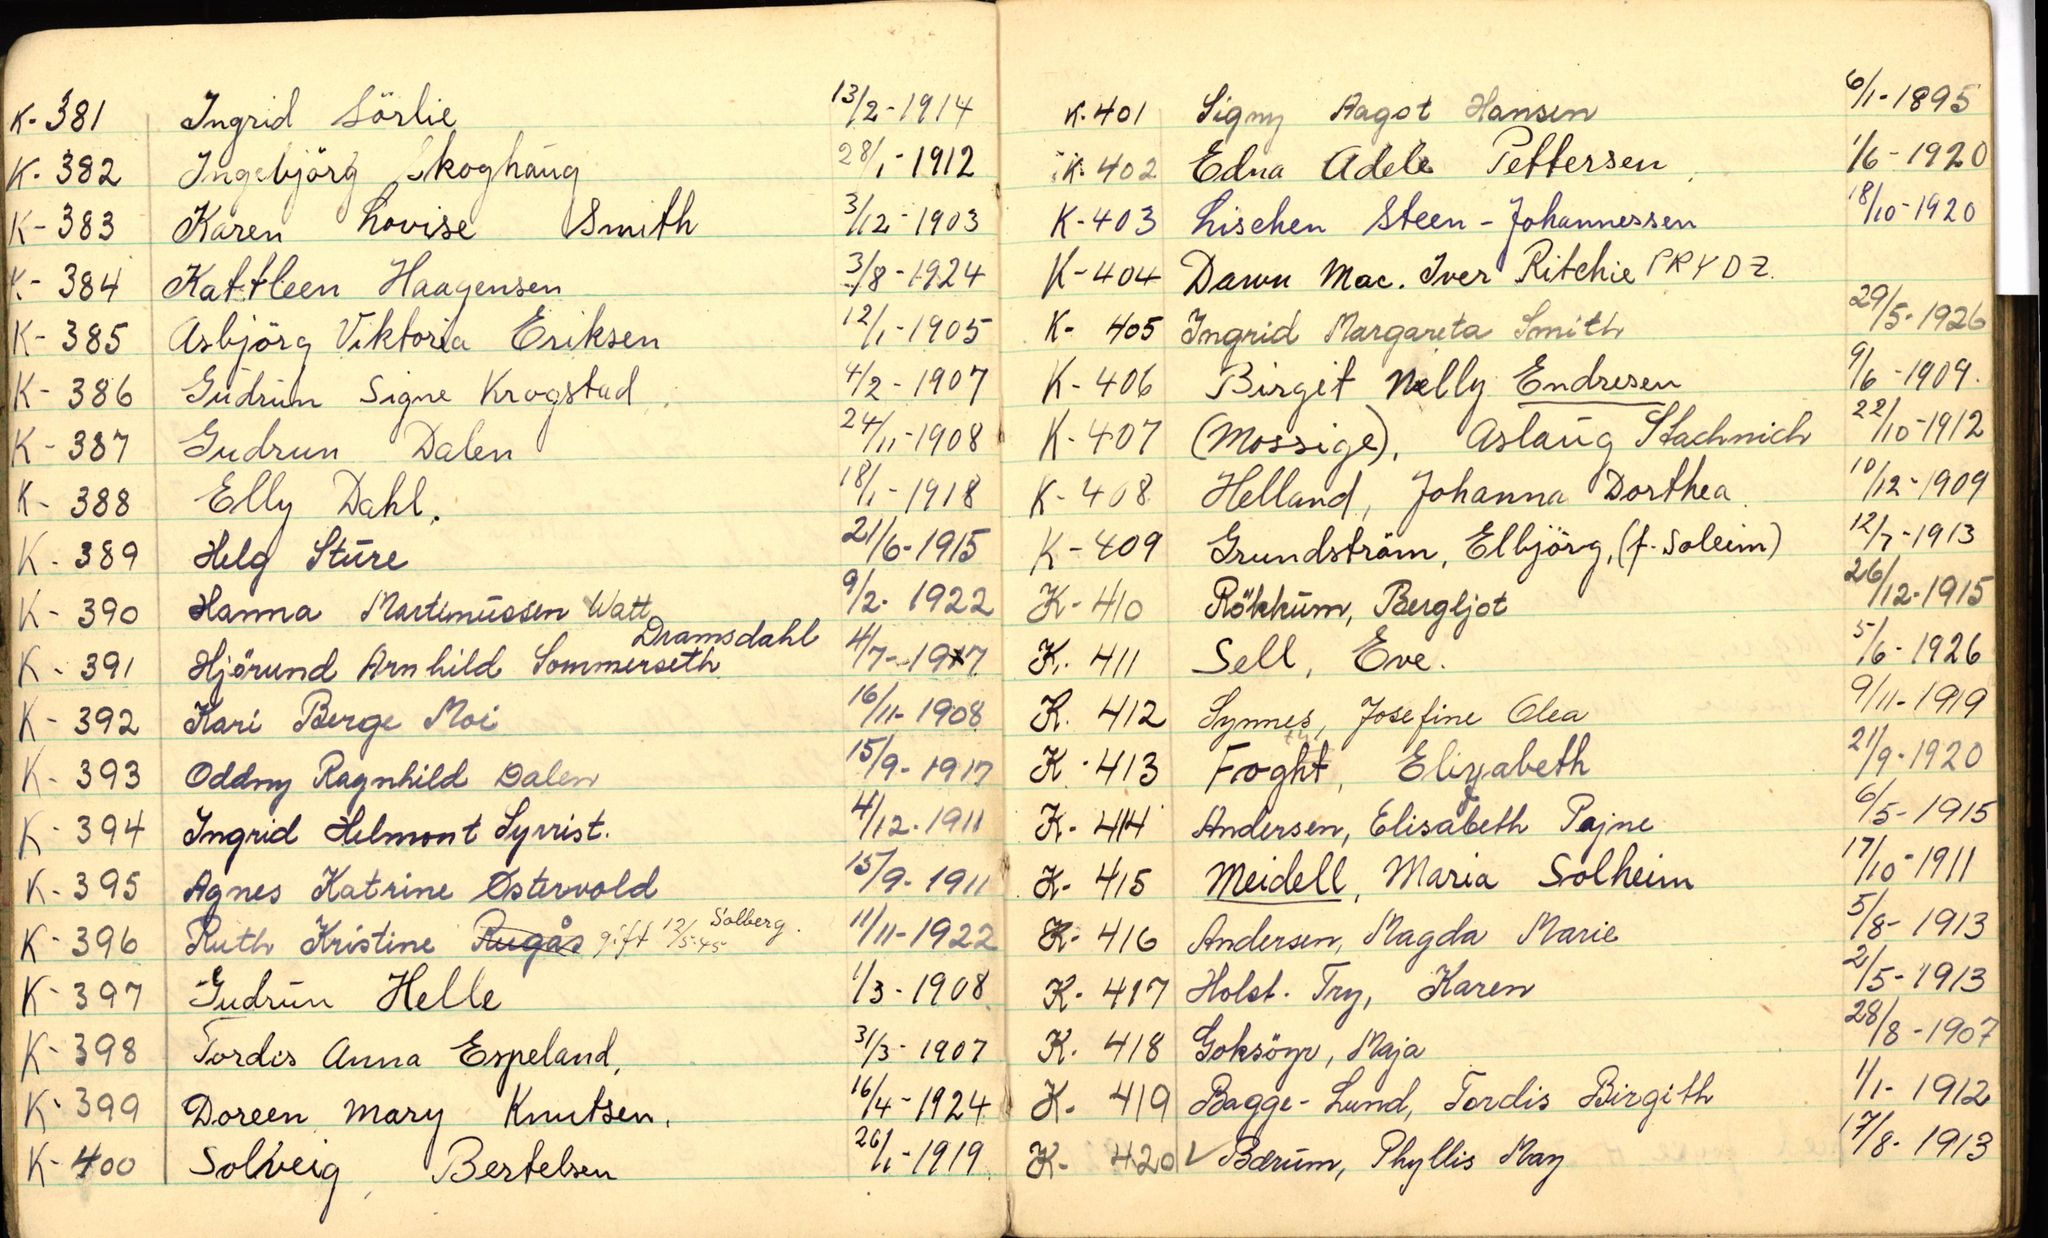 K-381 Ingrid Sörlie 13/2-1914
K-382 Ingebjörg Skoghaug 28/1-1912
K-383 Karen Lovise Smith 3/12-1903
K-384 Kattleen Haagensen 3/8-1924
K-385 Asbjörg Viktoria Eriksen 12/1-1905
K-386 Gudrun Signe Krogstad 4/2-1907
K-387 Gudrun Dalen 24/11-1908
K-388 Elly Dahl. 18/1-1918
K-389 Helg Sture 21/6-1915
K-390 Hanna Martinussen Watt 9/2-1922
Dramsdahl
K-391 Hjörund Arnhild Sommerseth 4/7-1917
K-392 Kari Berge Moi 16/11-1908
K-393 Oddny Ragnhild Dalen 15/9-1917
K-394 Ingrid Helmont Syvrist. 4/12-1911
K-395 Agnes Katrine Østervold 15/9-1911
K-396 Ruth Kristine Rugås gift 12/5-45 Solberg. 11/11-1922
K-397 Gudrun Helle 1/3-1908
K-398 Tordis Anna Espeland, 31/3-1907
K-399 Doreen Mary Knutsen. 16/4-1924
K-400 Solveig Bertelsen 26/1-1919
K-401 Signy Aagot Hansen 6/1-1895
K-402 Edna Adele Pettersen 1/6-1920
K-403 Lischen Steen-Johannessen 18/10-1920
K-404 Dawn Mac. Iver Ritchie PRYDZ.
K-405 Ingrid Margareta Smith 29/5-1926
K-406 Birgit Nelly Endresen 9/6-1909.
K-407 (Mossige), Aslaug Stachnich 22/10-1912
K-408 Helland, Johanna Dorthea 10/12-1909
K-409 Grundström, Elbjörg, (f. Soleim) 12/7-1913
K-410 Rökkum, Bergljot 26/12-1915
K-411 Sell, Eve. 5/6-1926
K-412 Synnes, Josefine Olea 9/11-1919
K-413 Foght, Elizabeth 21/9-1920
K-414 Andersen, Elisabeth Pajne 6/5-1915
K-415 Meidell, Maria Solheim 17/10-1911
K-416 Andersen, Magda Marie 5/8-1913
K-417 Holst. Try, Karen 2/5-1913
K-418 Goksöyr, Maja 28/8-1907
K-419 Bagge-Lund, Tordis Birgith 1/1-1912
K-420 ✓ Bærum, Phyllis May 17/8-1913